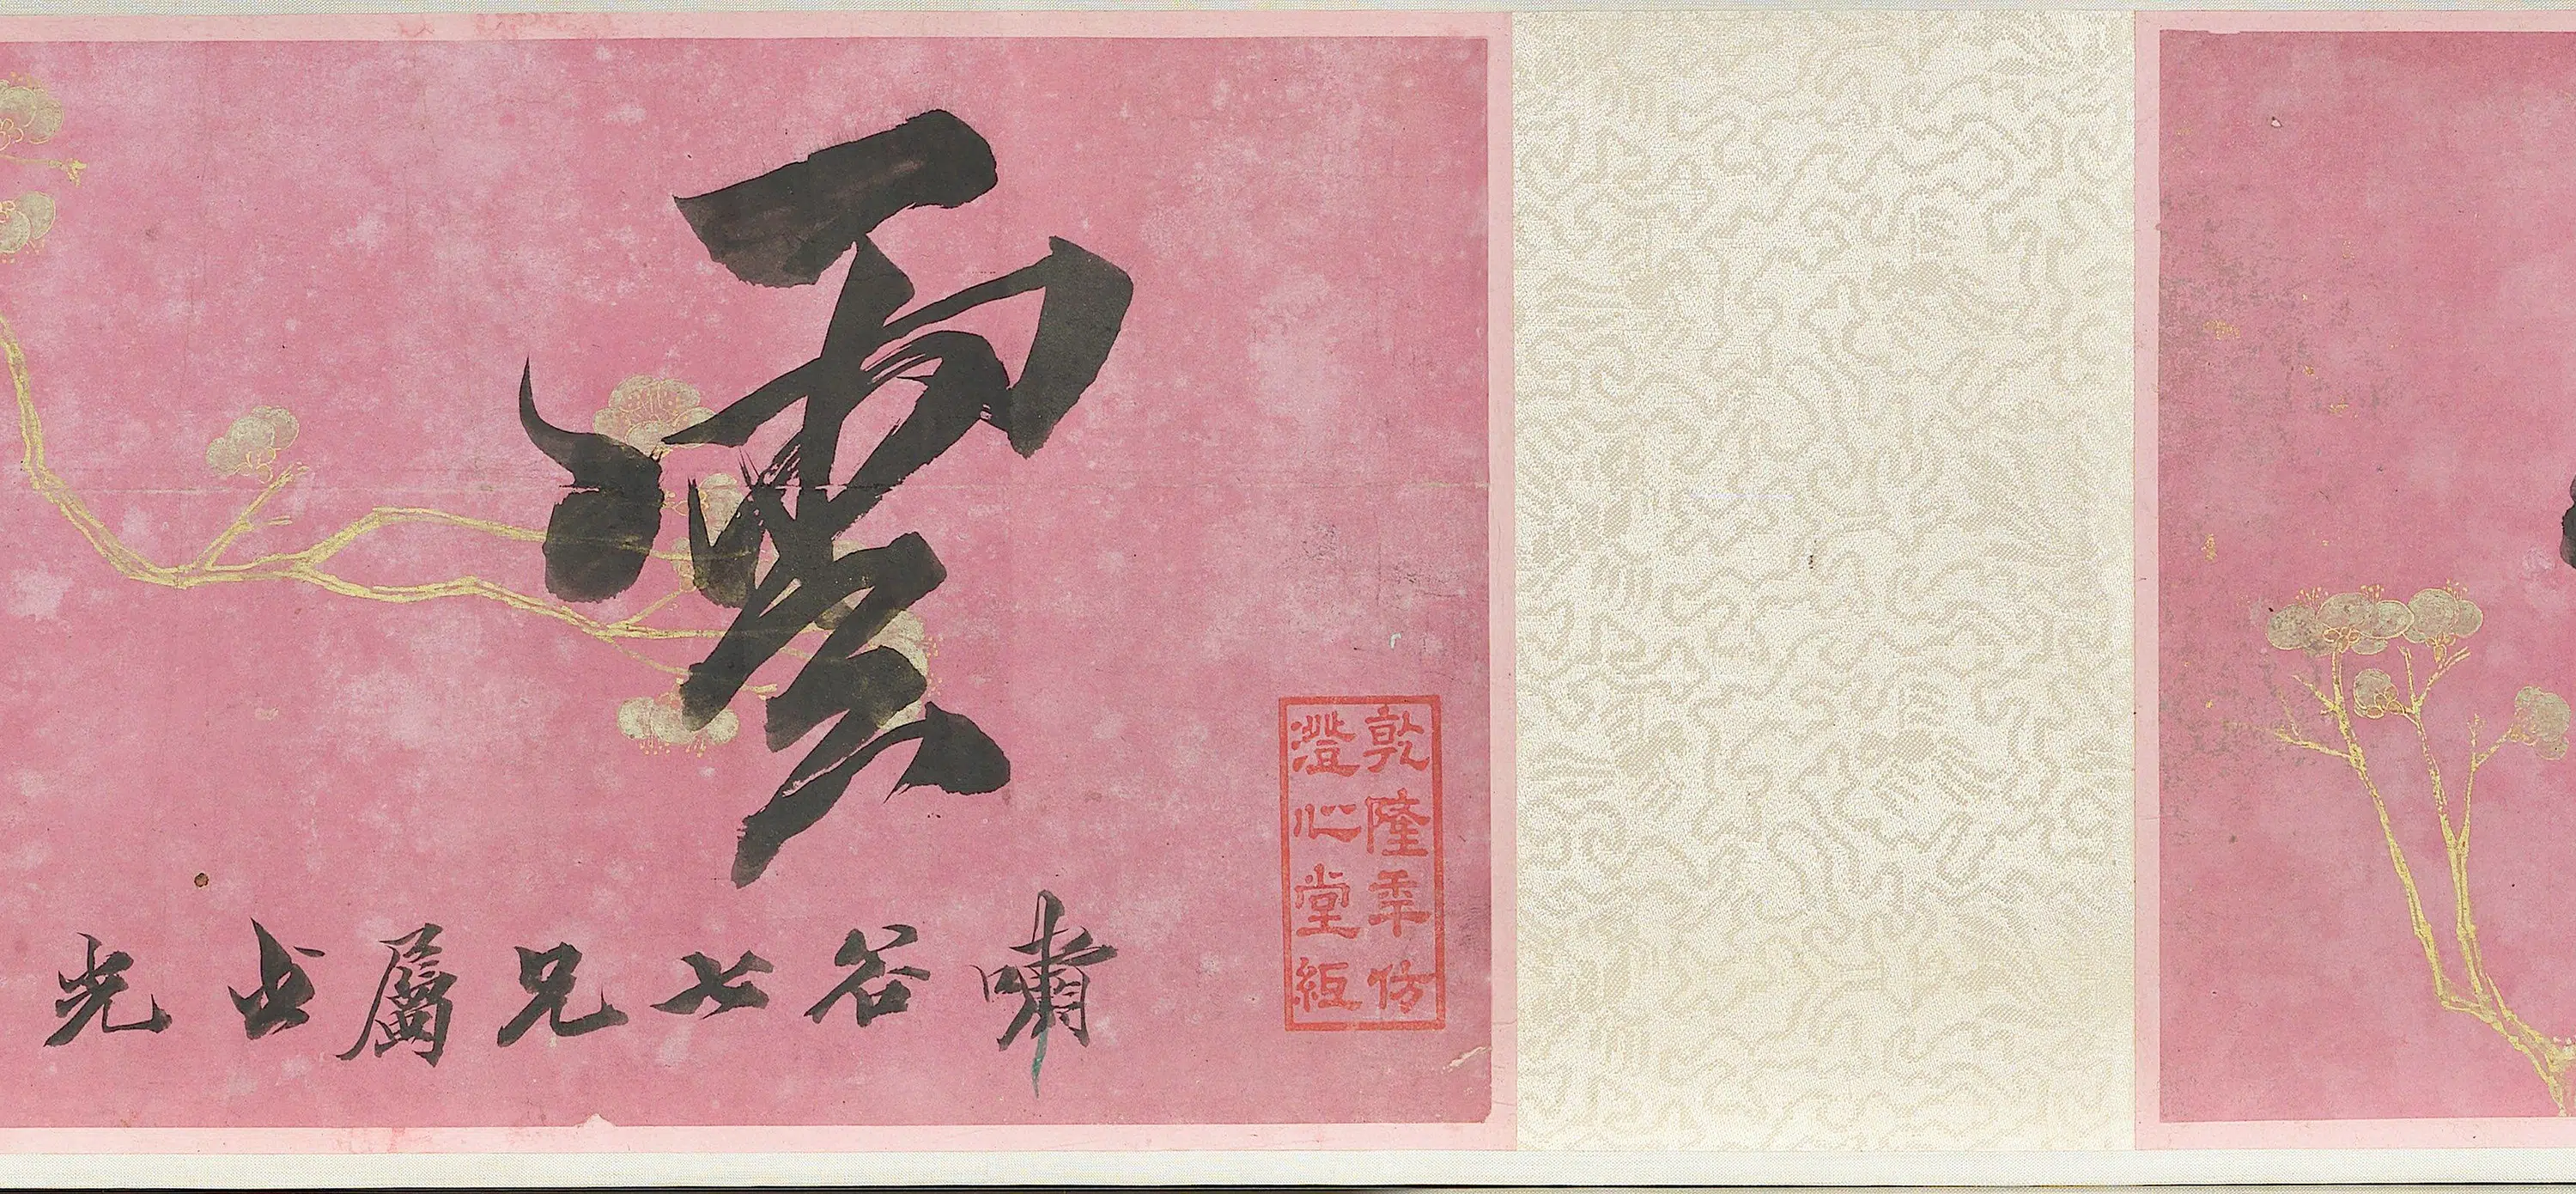 乾隆年仿
澄心堂紙
雲
嘯谷七兄屬光